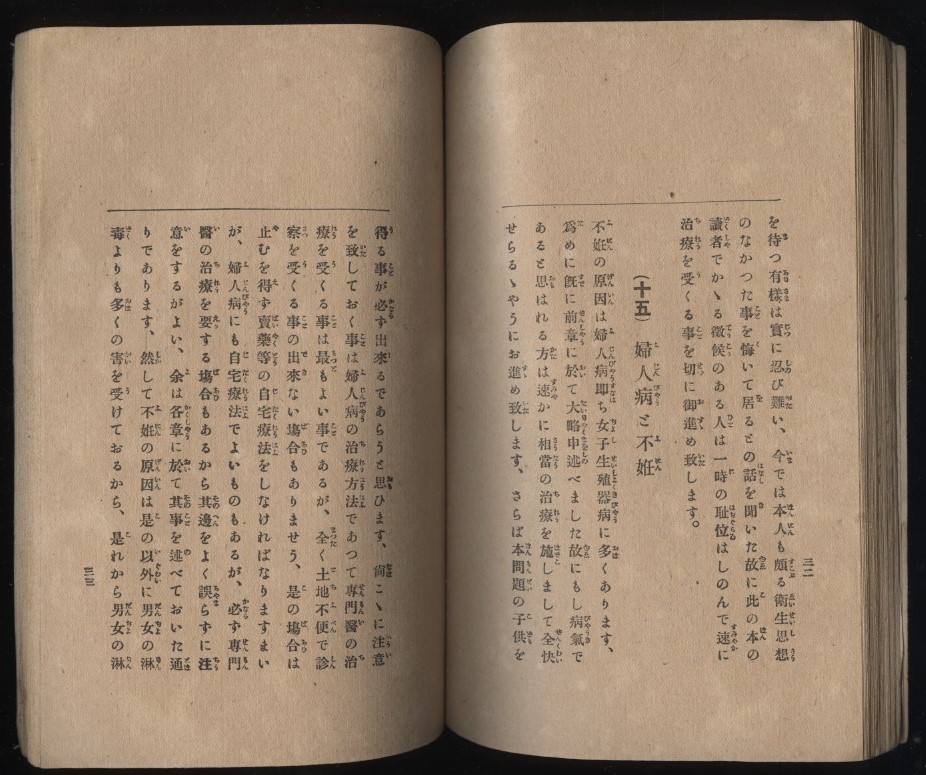 を待つ有様は實に忍び難い、今では本人も頗る衛生思想
のなかつた事を悔いて居るとの話を聞いた故に此の本の
讀者でかゝる徴候のある人は一時の耻位はしのんで速に
治療を受くる事を切に御進め致します。
(十五) 婦人病と不姙
不姙の原因は婦人病即ち女子生殖器病に多くあります、
爲めに旣に前章に於て大略申述べました故にもし病氣で
あると思はれる方は速かに相當の治療を施しまして全快
せらるゝやうにお進め致します、さらば本問題の子供を
三二
得る事が必ず出來るであらうと思ひます、尙こゝに注意
を致しておく事は婦人病の治療方法であつて專門醫の治
療を受くる事は最もよい事であるが、全く土地不便で診
察を受くる事の出來ない塲合もありませう、是の塲合は
止むを得ず賣藥等の自宅療法をしなければなりますまい
が、婦人病にも自宅療法でよいものもあるが、必ず專門
醫の治療を要する塲合もあるから其邊をよく誤らずに注
意をするがよい、余は各章に於て其事を述べておいた通
りであります、然して不姙の原因は是の以外に男女の淋
毒よりも多くの害を受けておるから、是れから男女の淋
三三